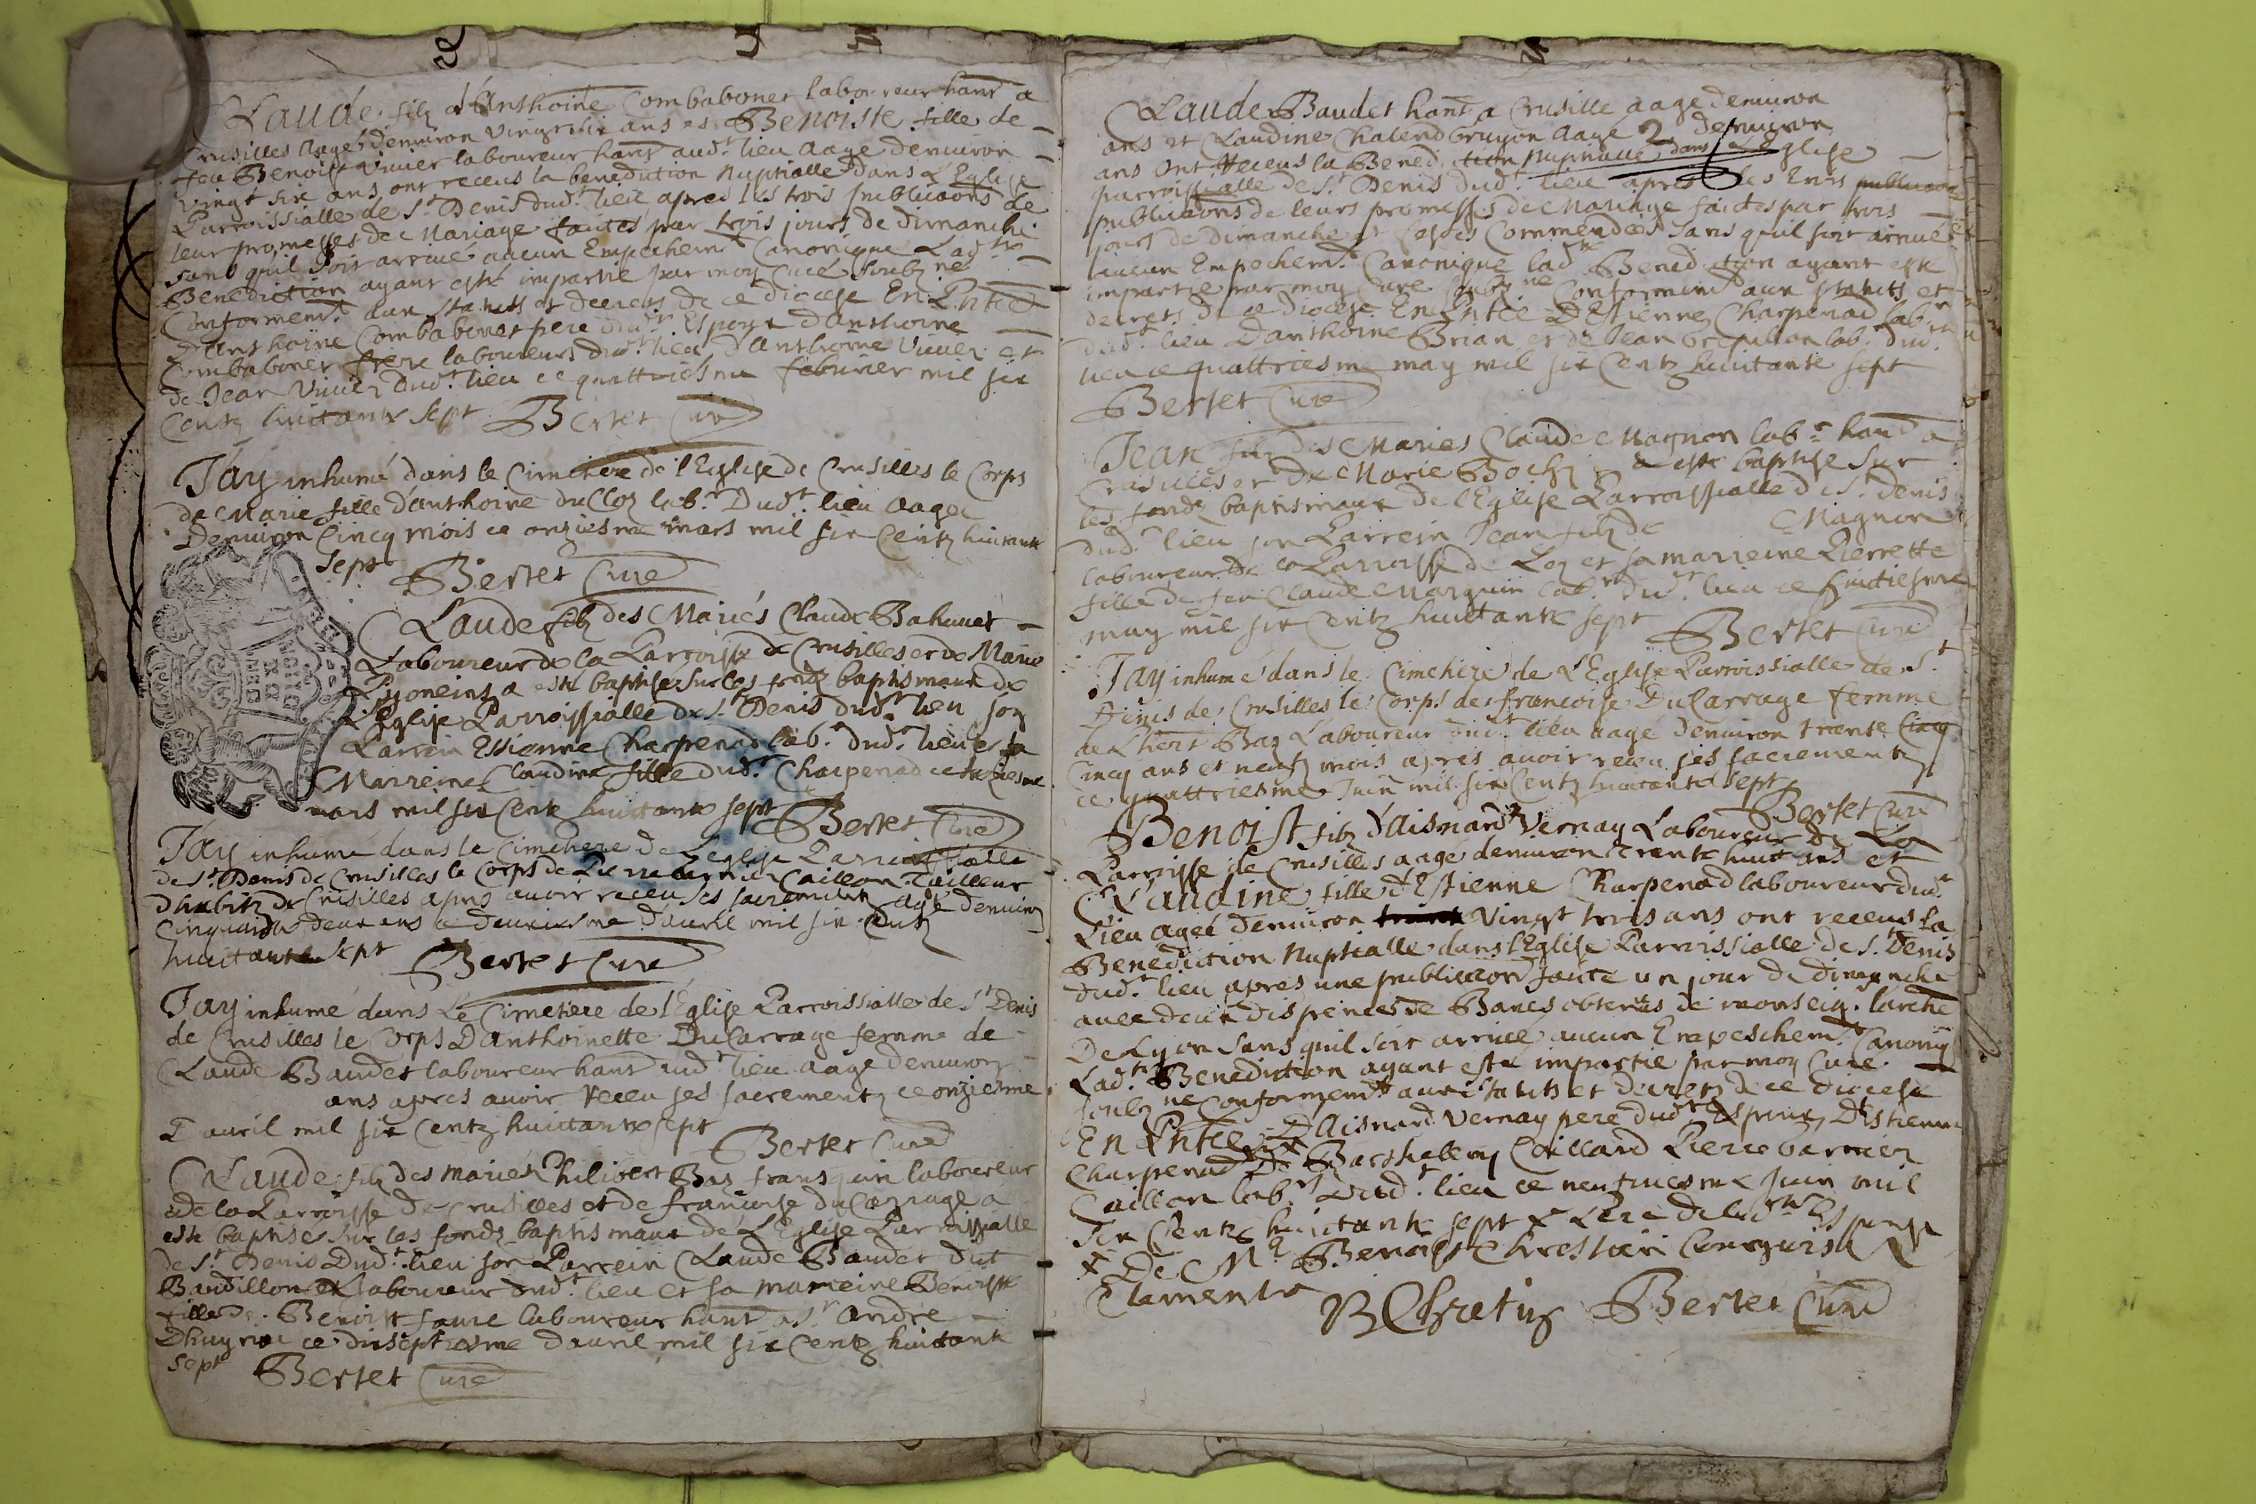 Claude filz d'Anthoine Combabonet laboureur hant a
Crusilles aagé denuiron vingt six ans et Benoiste fille de
feu Benoist Viuier laboureur hant audt lieu aagé denuiron
vingt six ans ont receus la benediction Nuptialle dans L'Eglise
Parroissialle de St Denis dudt lieu apres les trois publicaons de
leur promesses de Mariage faites par trois jours de dimanche
sans quil soit arriué aucun Empechemt Canonique Ladte
Benediction ayant esté impartie par moy Curé soubz né
Conformemt aux statuts et decrets de ce diocese En Pntce
d'Anthoine Combabonet pere dudt Espoux d'Anthoine
Combabonet frere laboureurs dudt lieu d'Anthoine Viuier et
de Jean Viuier dudt lieu ce quattriesme feburier mil six
Centz huictante sept Bertet Curé
J'ay inhumé dans le Cimetiere de l'Eglise de Crusilles le Corps
de Marie fille d'anthoine du Cloz labr Dudt lieu aagée
Denuiron Cincq mois ce onziesme mars mil six Centz huictante
sept Bertet Curé
Claude filz des Mariés Claude Bahuuet
Laboureur de la Parroisse de Crusilles et de Marie
Pigoneins a esté baptisé sur les fondz baptismaux de
L'Eglise Parroissialle de St Denis dudt lieu son
Parrein Estienne Charpenad labr dudt lieu et sa
Marreine Claudine fille dudt Charpenad ce
mars mil six Cent huictante sept Bertet Curé
J'ay inhumé dans le Cimetiere de L'eglise Parroissialle
de St Denis de Crusilles le Corps de Pierre Caillon Tailleur
d'habitz de Crusilles apres auoir receu ses sacrementz aagé denuiron
Cinquante deux ans ce deuxiesme d'auril mil six Centz
huictante sept Bertet Curé
J'ay inhumé dans Le Cimetiere de l'Eglise Parroissialle de St Denis
de Crusilles le Corps D'anthoinette Du Carrage femme de
Claude Baudet laboureur hant audt lieu aagé denuiron
ans apres auoir receu ses sacrementz ce onziesme
D'auril mil six Centz huictante sept Bertet Curé
Claude filz des mariés Philibert Baz laboureur
de la Parroisse de Crusilles et de françoise du Carrage a
esté baptisé sur les fondz baptismaux de L'Eglise Parroissialle
de St Denis Dudt lieu son Parrein Claude Baudet dit
Baudillon laboureur dudt lieu et sa marreine Benoiste
fille de Benoist faure laboureur hant a St André
Dhuyriat ce dixseptiesme d'auril mil six Centz huictante
sept Bertet Curé
Claude Baudet hant a Crusille aagé denuiron
ans et Claudine Chalend aagé denuiron
ans ont receus la Benediction Nuptialle dans L'Eglise
parroissialle de St Denis dudt lieu apres les trois
publicaons de leurs promesses de Mariage faictes par trois
jours de dimanche et festes Commendées sans quil soit arriué
aucun Empechemt Canonique ladte Benediction ayant esté
impartie par moy Curé soubz né Conformemt aux statuts et
decrets de ce diocese En Pntce D'Estienne Charpenad labr
dudt lieu D'anthoine Brian et de Jean labr dudt
lieu ce quattriesme may mil six Centz huictante sept
Bertet Curé
Jean filz des Mariés Claude Magnon labr hant a
Crusilles et de Marie a esté baptisé sur
les fondz baptismaux de l'Eglise Parroissialle de St Denis
dudt lieu son Parrein Jean filz de Magnon
laboureur de la Parroisse de et sa marreine Pierrette
fille de feu Claude Marguin labr dudt lieu ce huictiesme
may mil six Centz huictante sept Bertet Curé
J'ay inhumé dans le Cimetiere de L'Eglise Parroissialle de St
Denis de Crusilles le Corps de françoise Du Carrage femme
de Baz Laboureur dudt lieu aagé denuiron trente Cincq
Cincq ans et neufz mois apres auoir receu ses sacrementz
ce quattriesme Juin mil six Centz huictante sept
Bertet Curé
Benoist filz d'Aismard Vernay Laboureur De La
Parroisse de Crusilles aagé denuiron Trente huict ans et
Claudine fille d'Estienne Charpenad laboureur dudt
Lieu agée denuiron vingt trois ans ont receus la
Benediction Nuptialle dans l'Eglise Parroissialle de St Denis
dudt lieu apres une publicaon faicte un jour de dimanche
auec deux dispences de Bancs obtenus de monseigr l'arche
De Lyon sans quil soit arriué aucun Empeschemt Canoniq
Ladte Benediction ayant esté impartie par moy Curé
soubz né Conformemt aux statuts et decretz de ce diocese
En Pntce D'Aismard Vernay pere dudt Espoux D'Estienne
Charpenad De Barthellemy Coillard Pierre Garnier
Caillon labrs dudt lieu ce neufuiesme Juin mil
Six Centz huictante sept x Pere de ladte Espouse
x De Mr Benoist Chrestien
Clamente
B Chretin Bertet Curé